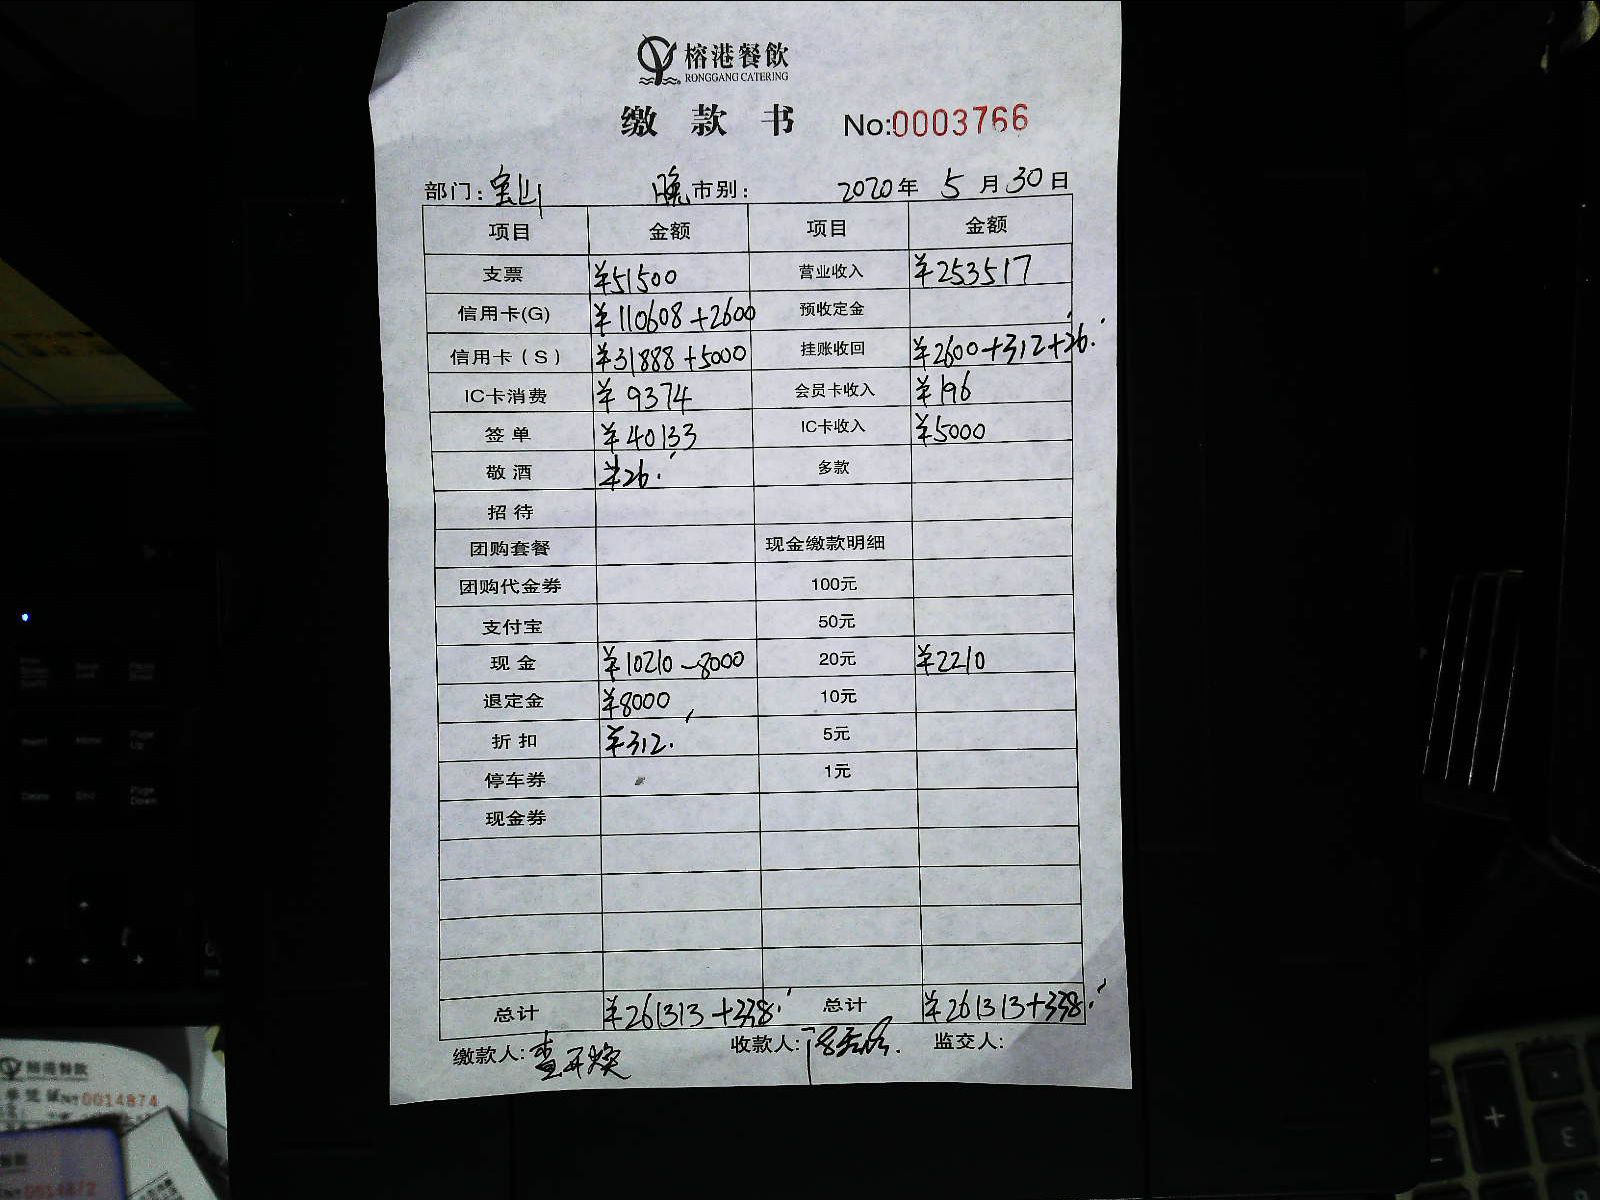 榕港餐飲
RONGGANG CATERING
缴款书 No:0003766
部门: 宝山 晚市别: 2020年 5月30日
项目 金额 项目 金额
支票 ¥51500 营业收入 ¥253517
信用卡(G) ¥110608+2600 预收定金
信用卡(S) ¥31888+5000 挂账收回 ¥2600+312+26.
IC卡消费 ¥9374 会员卡收入 ¥196
签单 ¥40133 IC卡收入 ¥5000
敬酒 ¥26. 多款
招待
团购套餐 现金缴款明细
团购代金券 100元
支付宝 50元
现金 ¥10210-8000 20元 ¥2210
退定金 ¥8000 10元
折扣 ¥312. 5元
停车券 1元
现金券
总计 ¥261313+338. 总计 ¥261313+338.
缴款人: 收款人: 监交人:
榕港餐飲
0014874